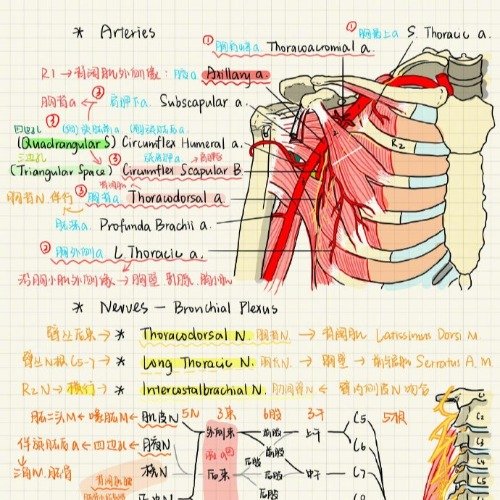 * Arteries
① 胸肩峰a. Thoracoacromial a. ① 胸最上a S. Thoracic a.
R1 → 背阔肌外侧缘: 腋a Axillary a.
胸背a ← ② 肩胛下a. Subscapular a.
四边孔 ③ (前)旋肱前a (后)旋肱后a
(Quadrangular S) Circumflex Humeral a.
三边孔 ③ 旋肩胛a
(Triangular Space) Circumflex Scapular B.
胸背N 伴行 ← ③ 胸背a Thoracodorsal a.
肱深a. Profunda Brachii a.
② 胸外侧a L Thoracic a.
沿胸小肌外侧缘 → 胸壁. 乳腺. 胸小肌
R2
* Nerves — Bronchial Plexus
臂丛后束 → * Thoracodorsal N. 胸背N. → 背阔肌 Latissimus Dorsi M.
臂丛N根C5-7 → * Long Thoracic N. 胸长N. → 胸壁 → 前锯肌 Serratus A. M.
R2N → 横行 → * Intercostalbrachial N. 肋间臂N ← 臂内侧皮N吻合
肱二头M ← 喙肱M ← 肌皮N 5N 3束 6股 3干 C5 5根
外侧束 前股 上干
伴旋肱后a ← 四边孔 ← 腋N C6
三角M. 肱骨 桡N 后束 后股 中干 C7
背阔肌
C8
C1
C2
C3
C4